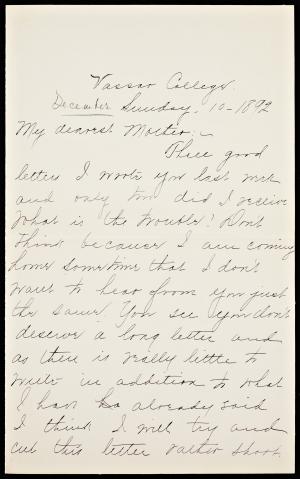 Vassar College.
December Sunday, 10-1892
My dearest Mother:-
Three good
letters I wrote you last week
and only two did I receive
What is the trouble? Dont
think because I am coming
home sometime that I don't
want to hear from you just
the same. You see you don't
deserve a long letter and
as there is really little to
write in addition to what
I have ha already said
I think I will try and
cut this letter rather short.